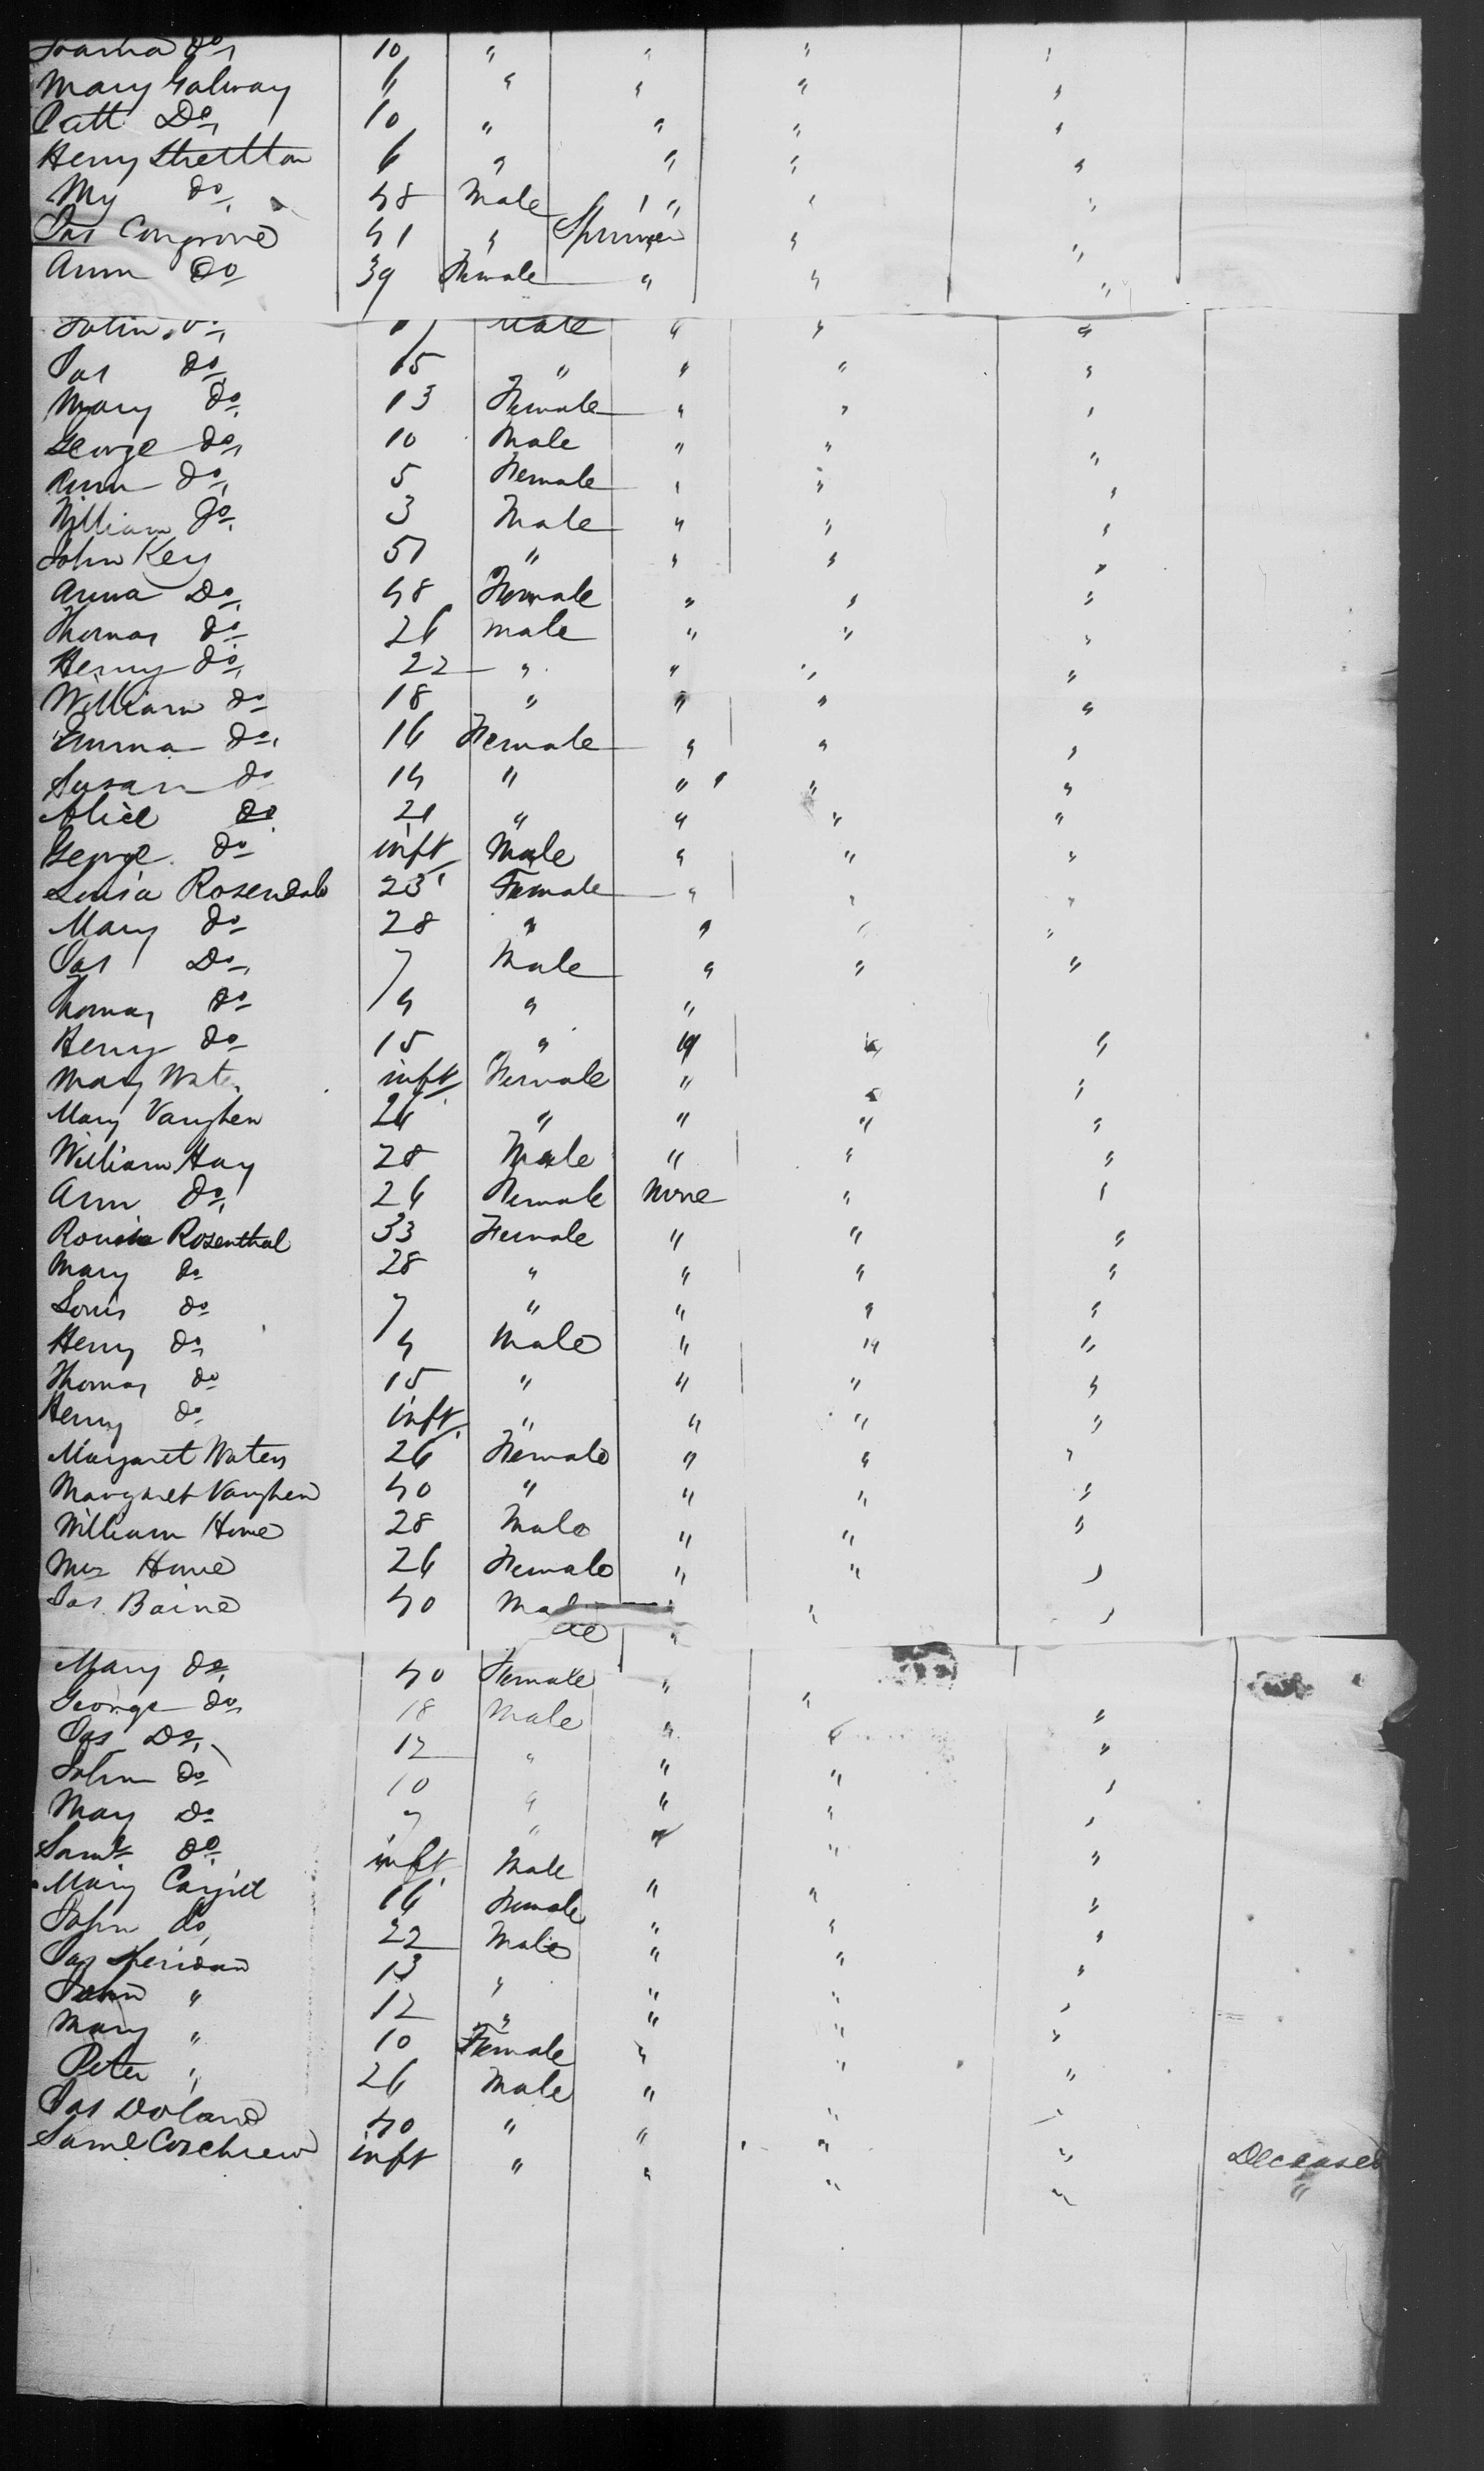 do 10 " " " "
Mary Galway 6 " " " "
Patt Do 10 " " " "
Henry Stretton 6 " " " "
My do 48 Male " " "
Jas Congrove 41 " " "
Ann Do 39 Female " " "
John Do 17 Male " " "
Jas do 15 " " " "
Mary do 13 Female " " "
George do 10 Male " " "
Ann do 5 Female " " "
William Jo 3 Male " " "
John Key 51 " " " "
Anna Do 48 Female " " "
Thomas do 26 male " " "
Henry do 22 " " " "
William do 18 " " " "
Emma do 16 Female " " "
Susan do 14 " " " "
Alice do 21 " " " "
George do inft Male " " "
Louisa Rosendale 23 Female " " "
Mary do 28 " " " "
Jas Do 7 Male " " "
Thomas do 4 " "
Henry do 15 " " " "
Mary Wate inft Female " " "
Mary Vaughen 26 " " " "
William Hay 28 Male " " "
Ann do 26 Female None " "
Rosenthal 33 Female " " "
Mary do 28 " " " "
Louis do 7 " " " "
Henry do 4 Male " " "
Thomas do 15 " " " "
Henry do inft " " " "
Margaret Waters 26 Female " " "
Margaret Vaughen 40 " " " "
William Hone 28 Male " " "
Mrs Hone 26 Female " " "
Jas Baine 40 Male " " "
Mary do 40 Female " "
George do 18 Male " " "
Jas Do 12 " " " "
John do 10 " " " "
May Do 7 " " " "
Saml do inft Male " " "
Mary Cargill 16 Female " " "
John do 22 Male " " "
Jas Sheridan 13 " " " "
John " 12 " " " "
Mary " 10 Female " " "
Peter " 26 Male " " "
Jas Doland 40 " " " " Deceased
Saml Cochrew inft " " " " "